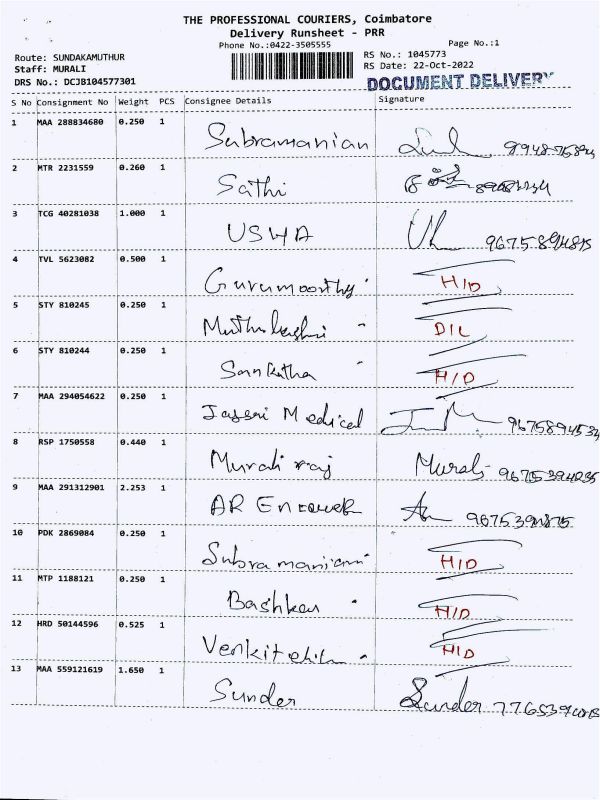 THE PROFESSIONAL COURIERS, Coimbatore
Delivery Runsheet - PRR
Phone No.:0422-3505555
Page No.:1
Route: SUNDAKAMUTHUR
RS No.: 1045773
Staff: MURALI
RS Date: 22-Oct-2022
DRS No.: DCJB104577301
DOCUMENT DELIVERY
S No Consignment No Weight PCS Consignee Details Signature
1 MAA 288834680 0.250 1 Subramanian
2 MTR 2231559 0.260 1 Sathi
3 TCG 40281038 1.000 1 USHA
4 TVL 5623082 0.500 1 Gurumoorthy H/D
5 STY 810245 0.250 1 D/L
6 STY 810244 0.250 1 H/D
7 MAA 294054622 0.250 1 Medical
8 RSP 1750558 0.440 1 Murali raj Murali
9 MAA 291312901 2.253 1 AR
10 PDK 2869084 0.250 1 H/D
11 MTP 1188121 0.250 1 H/D
12 HRD 50144596 0.525 1 H/D
13 MAA 559121619 1.650 1 Sunder Sunder